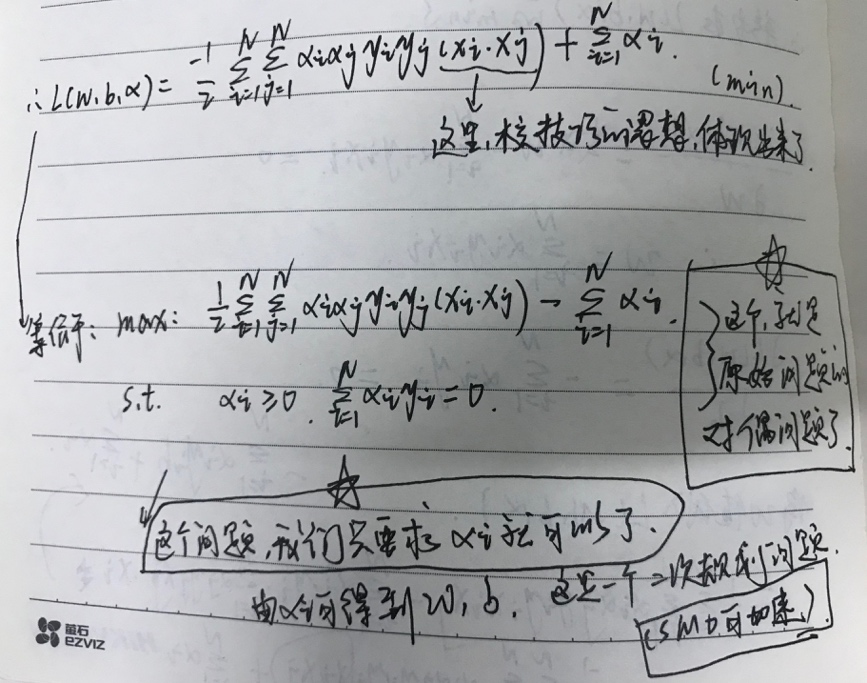 ∴ L(w,b,α) = -1/2 Σ_{i=1}^{N} Σ_{j=1}^{N} αiαjyiyj(xi·xj) + Σ_{i=1}^{N} αi. (min).
这里,核技巧的思想,体现出来了.
等价于: max: 1/2 Σ_{i=1}^{N} Σ_{j=1}^{N} αiαjyiyj(xi·xj) - Σ_{i=1}^{N} αi.
s.t. αi ≥ 0. Σ_{i=1}^{N} αiyi = 0.
这个,就是
原始问题的
对偶问题了.
这个问题,我们只要求 αi 就可以了.
由αi可得到 w, b. 这是一个二次规划问题.
(SMO可加速)
萤石
EZVIZ